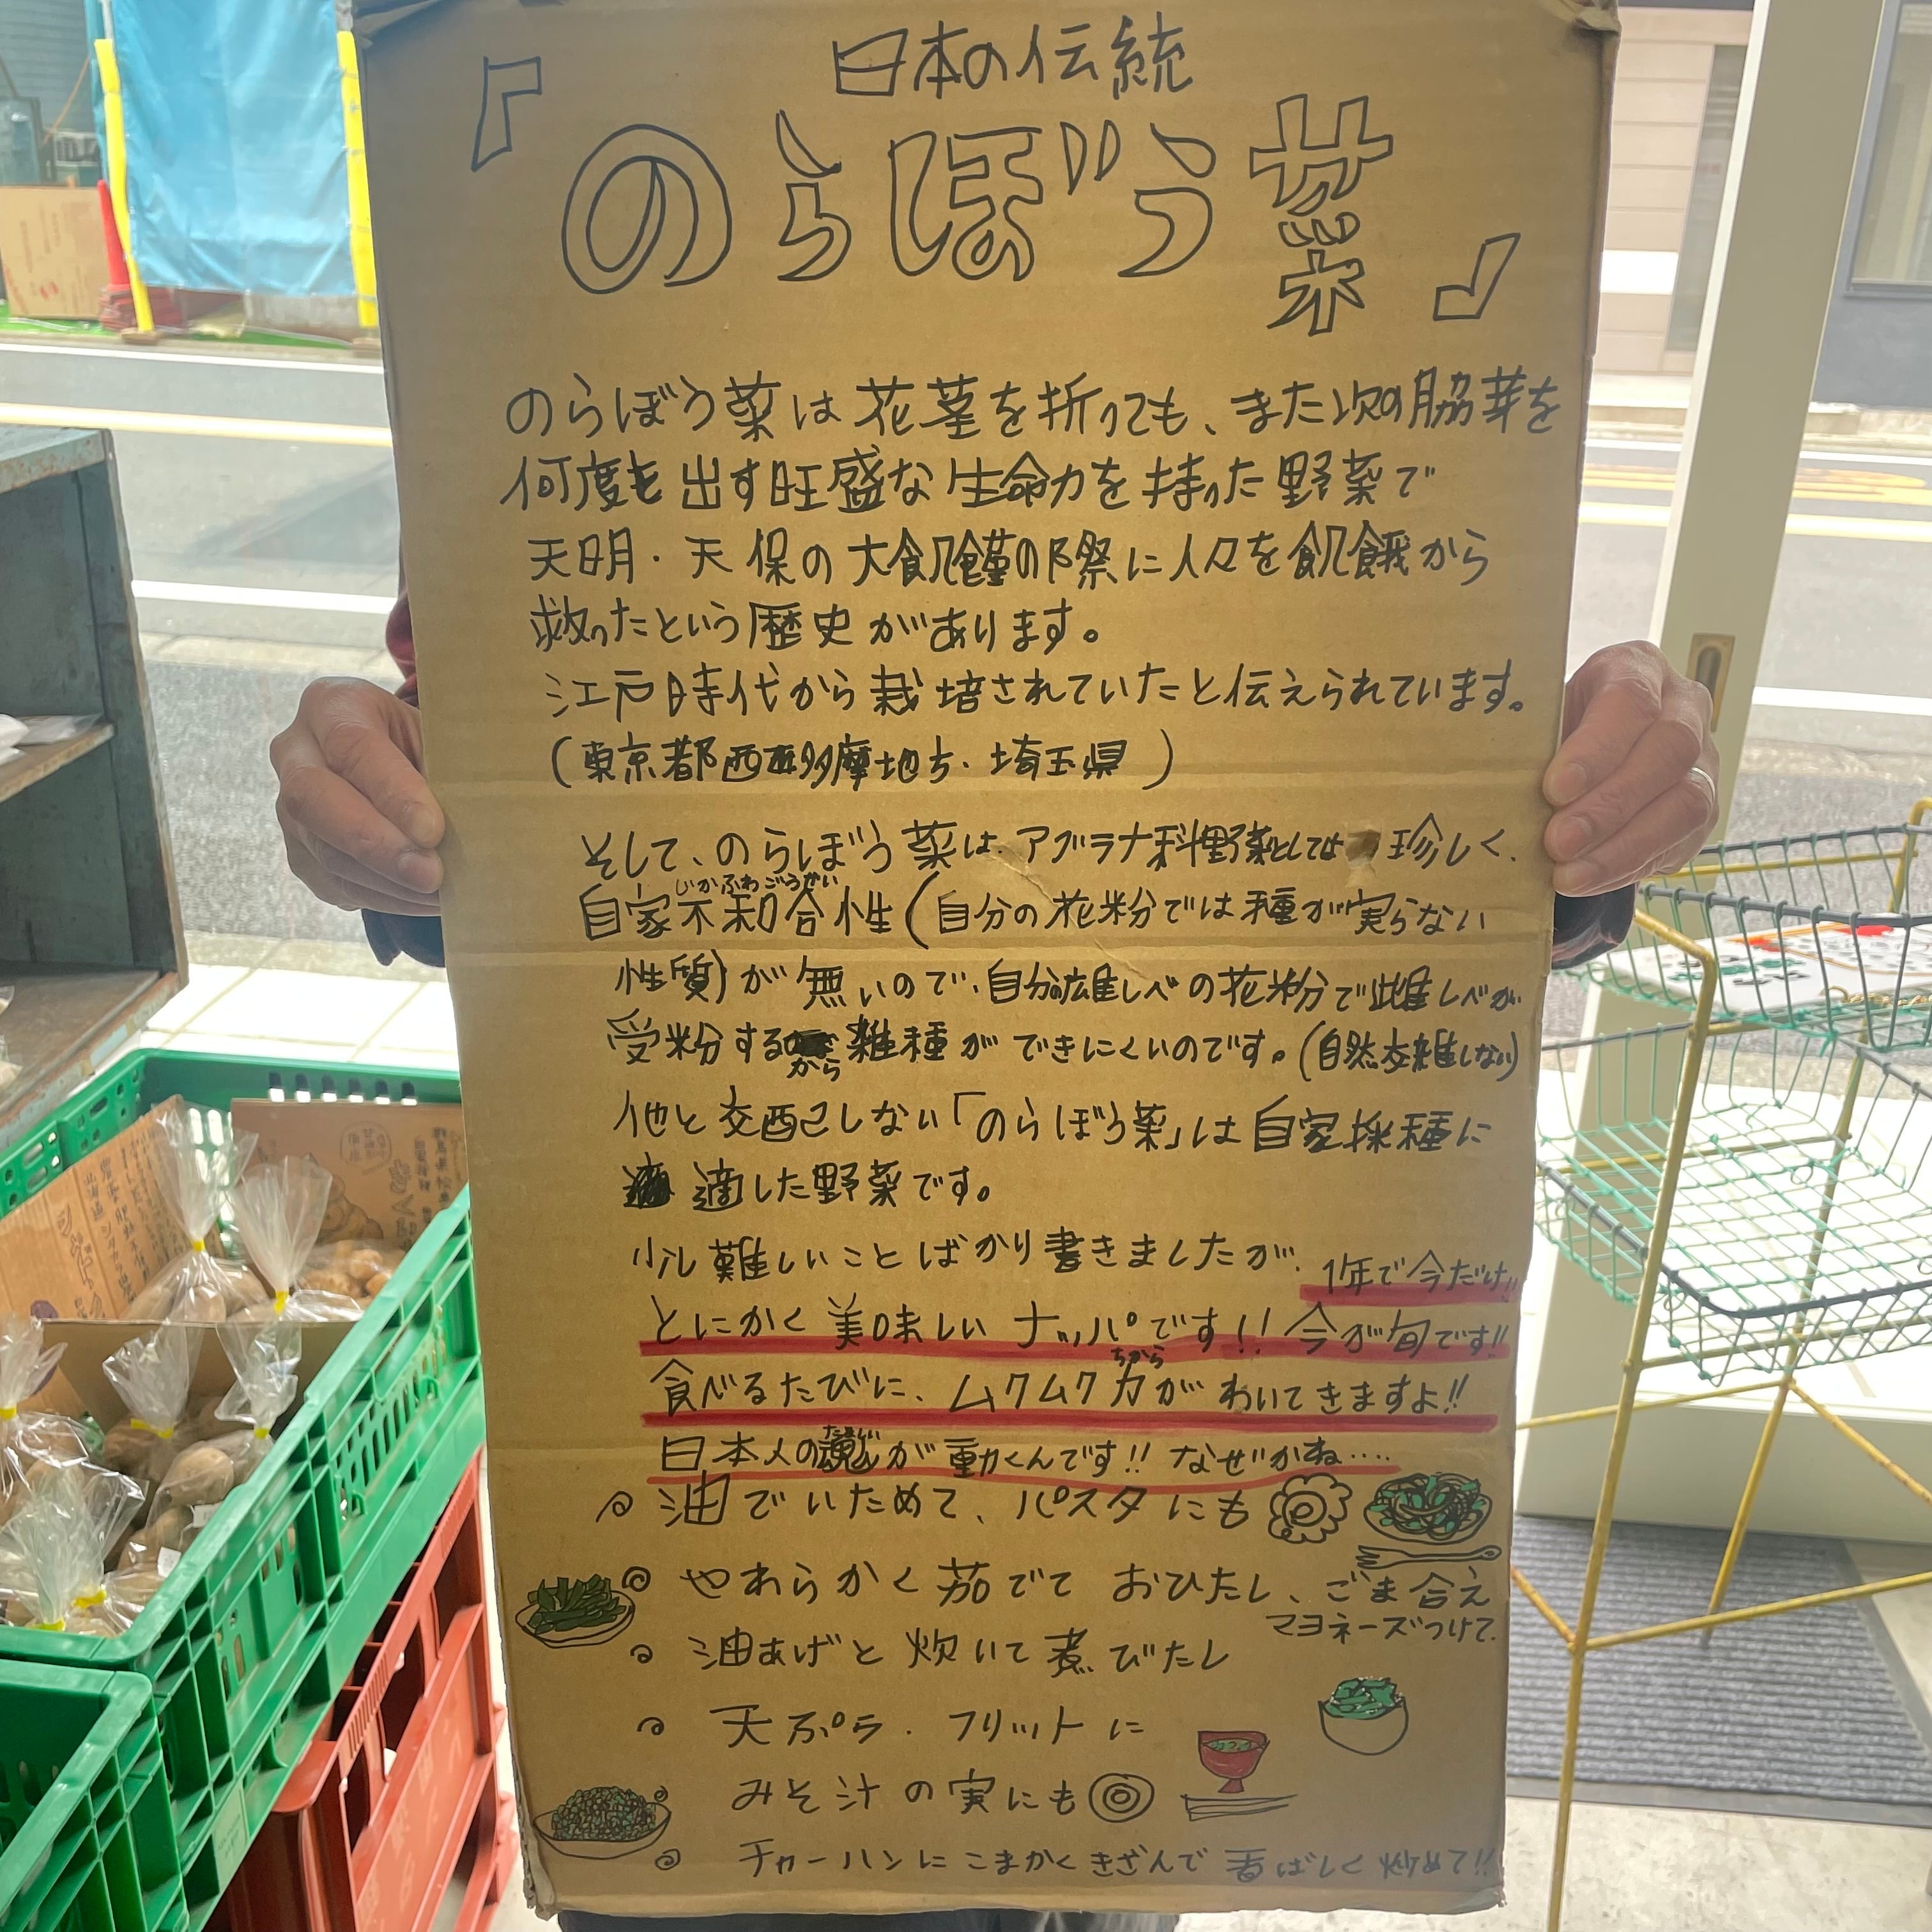 日本の伝統
『のらぼう菜』
のらぼう菜は花茎を折っても、また次の脇芽を
何度も出す旺盛な生命力を持った野菜で
天明・天保の大飢饉の際に人々を飢餓から
救ったという歴史があります。
江戸時代から栽培されていたと伝えられています。
(東京都西多摩地方・埼玉県)
そして、のらぼう菜は、アブラナ科野菜としては珍しく、
じかふわごうせい
自家不和合性(自分の花粉では種が実らない
性質)が無いので、自分の雄しべの花粉で雌しべが
受粉する 雑種ができにくいのです。(自然交雑しない)
から
他と交配しない「のらぼう菜」は自家採種に
適した野菜です。
少し難しいことばかり書きましたが、
1年で今だけ!!
とにかく美味しいナッパです!! 今が旬です!!
ちから
食べるたびに、ムクムク力がわいてきますよ!!
たましい
日本人の魂が動くんです!! なぜかね‥‥
油でいためて、パスタにも
やわらかく茹でておひたし、ごま合え
マヨネーズつけて、
油あげと炊いて煮びたし
天ぷら・フリットに
みそ汁の実にも◎
チャーハンにこまかくきざんで香ばしく炒めて!!